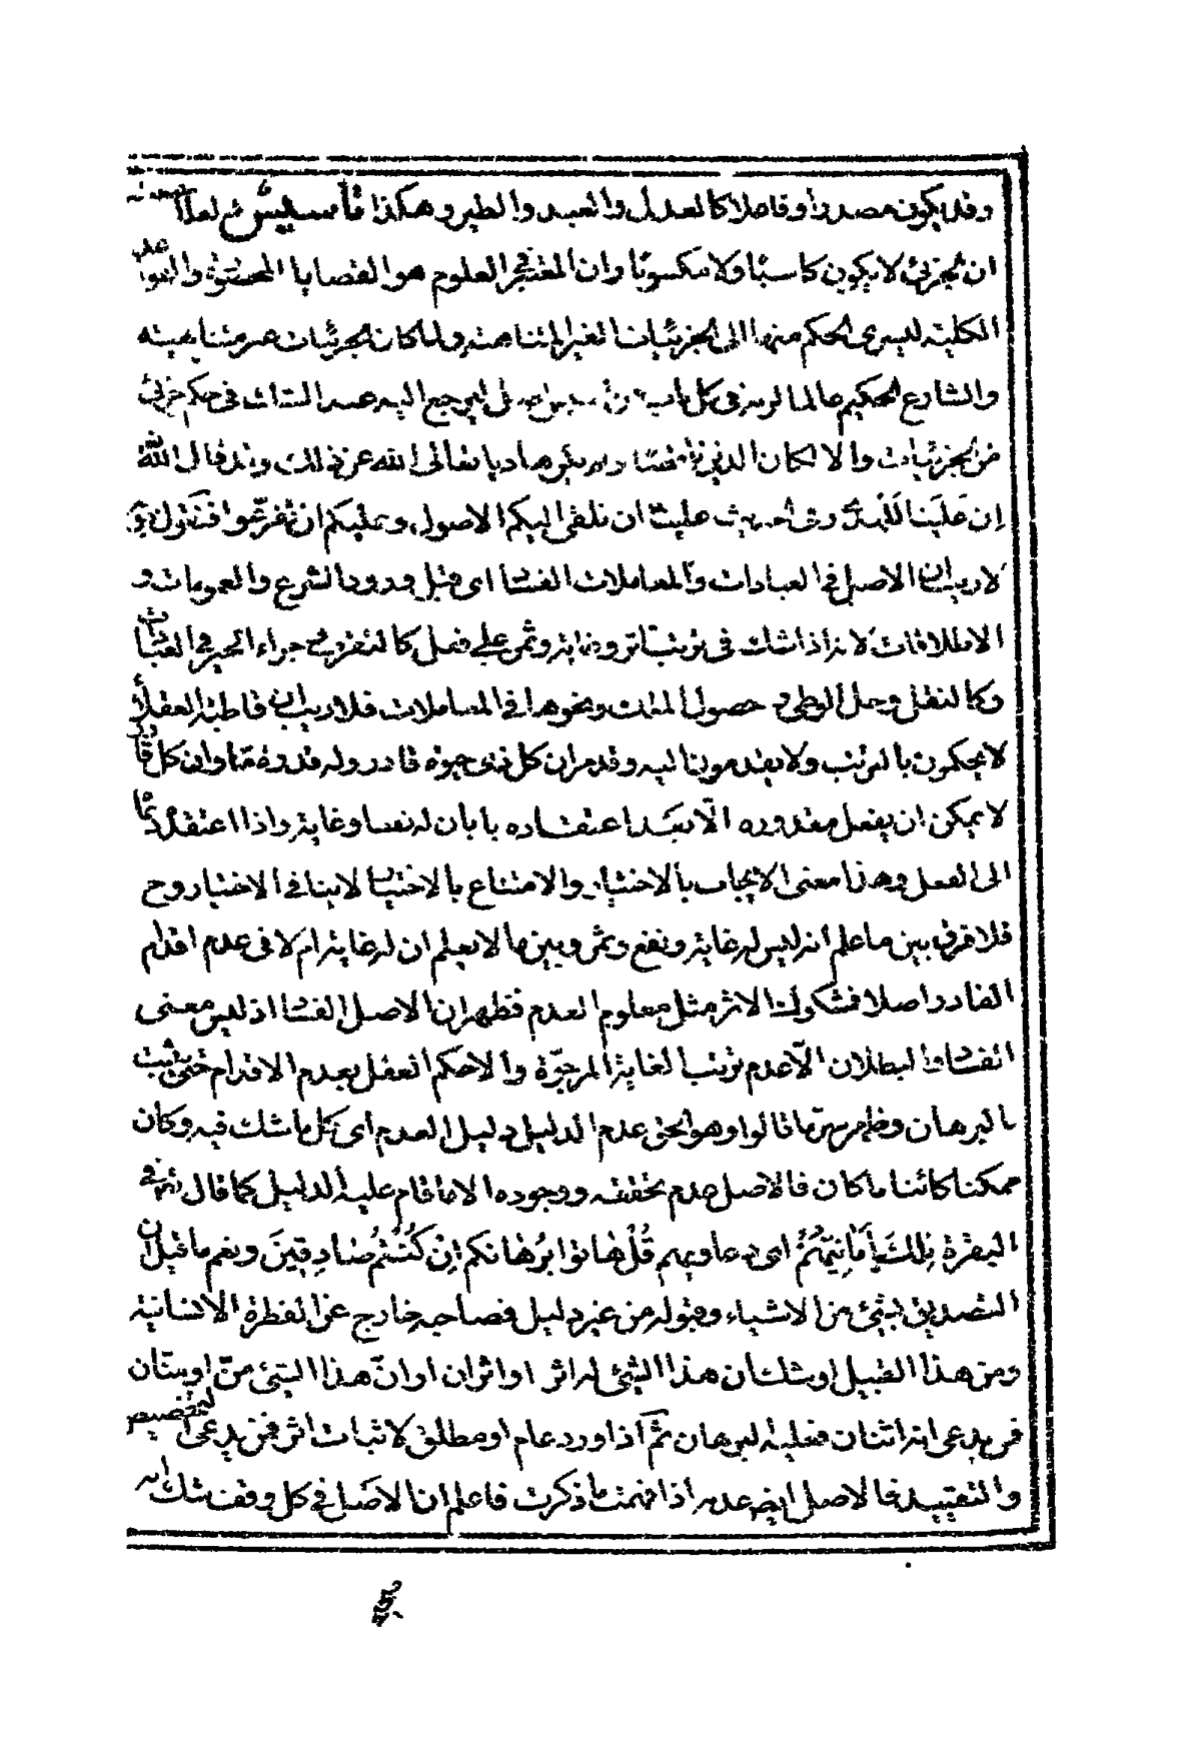 وقد يكون مصدرا وفاعلا كالعدل والعبد والطير وهكذا تأسيس
ان الجزئي لا يكون كاسبًا ولا مكسوبًا وان المنتج في العلوم هو القضايا المحصورة والقواعد
الكلية ليسرى الحكم منها الى الجزئيات الغير المتناهية ولما كان الجزئيات غير متناهية
والشارع الحكيم عالما في كل باب من اصل ليرجع اليه عند الشك في حكم جزئي
من الجزئيات والا لكان الدين ناقصًا ولم يكن هاديا تعالى الله عن ذلك وقد قال الله
إن عَلَينا لَلْهُدىٰ وفي الحديث علينا ان نلقى اليكم الاصول وعليكم ان تفرّعوا فنقول
لا ريب ان الاصل في العبادات والمعاملات الفساد اى قبل ورود الشرع والعمومات و
الاطلاقات لانه اذا شك في ترتب اثر وغاية وثمر على فعل كالتقرب جزاء الخير في العبادات
وكالنقل وحل الوطي و حصول الملك ونحوها في المعاملات فلا ريب ان قاطبة العقلاء
لا يحكمون بالترتب ولا يقدمون اليه وقد مر ان كل ذى حيوة قادر وله قدرة ما وان كل قادر
لا يمكن ان يفعل مقدوره الّا بعد اعتقاده بان له نفعا وغاية واذا اعتقد
الى الفعل وهذا معنى الايجاب بالاختيار والامتناع بالاختيار لا ينافى الاختيار وح
فلا فرق بين ما علم انه ليس له غاية ونفع وثمر وبين ما لا يعلم ان له غاية ام لا فى عدم اقدام
القادر اصلا فمشكوك الاثر مثل معلوم العدم فظهر ان الاصل الفساد اذ ليس معنى
الفساد والبطلان الّا عدم ترتب الغاية المرجوّة والا لحكم العقل بعدم الاقدام حتى يثبت
بالبرهان وظهر سر ما قالوا وهو الحق عدم الدليل دليل العدم اى كل ما شك فيه وكان
ممكنا كائنا ما كان فالاصل عدم تحققه ووجوده الا ما قام عليه الدليل كما قال تع في
البقرة تِلكَ أَمَانِيّهُمْ اى دعاويهم قُلْ هَاتوا بُرْهَانكم اِنْ كُنْتُمْ صَادِقِينَ ونعم ما قيل ان
التصديق بشئ من الاشياء وقبوله من غير دليل فصاحبه خارج عن الفطرة الانسانية
ومن هذا القبيل لو شك ان هذا الشئ له اثر او اثران او ان هذا الشئ منّ او منّان
فمن يدعى انه اثنان فعليه البرهان ثمّ اذا ورد عام او مطلق لاثبات اثر فمن يدعى التخصيص
والتقييد فالاصل ايضا عدمه اذا فهمت ما ذكرت فاعلم ان الاصل في كل وقف شك